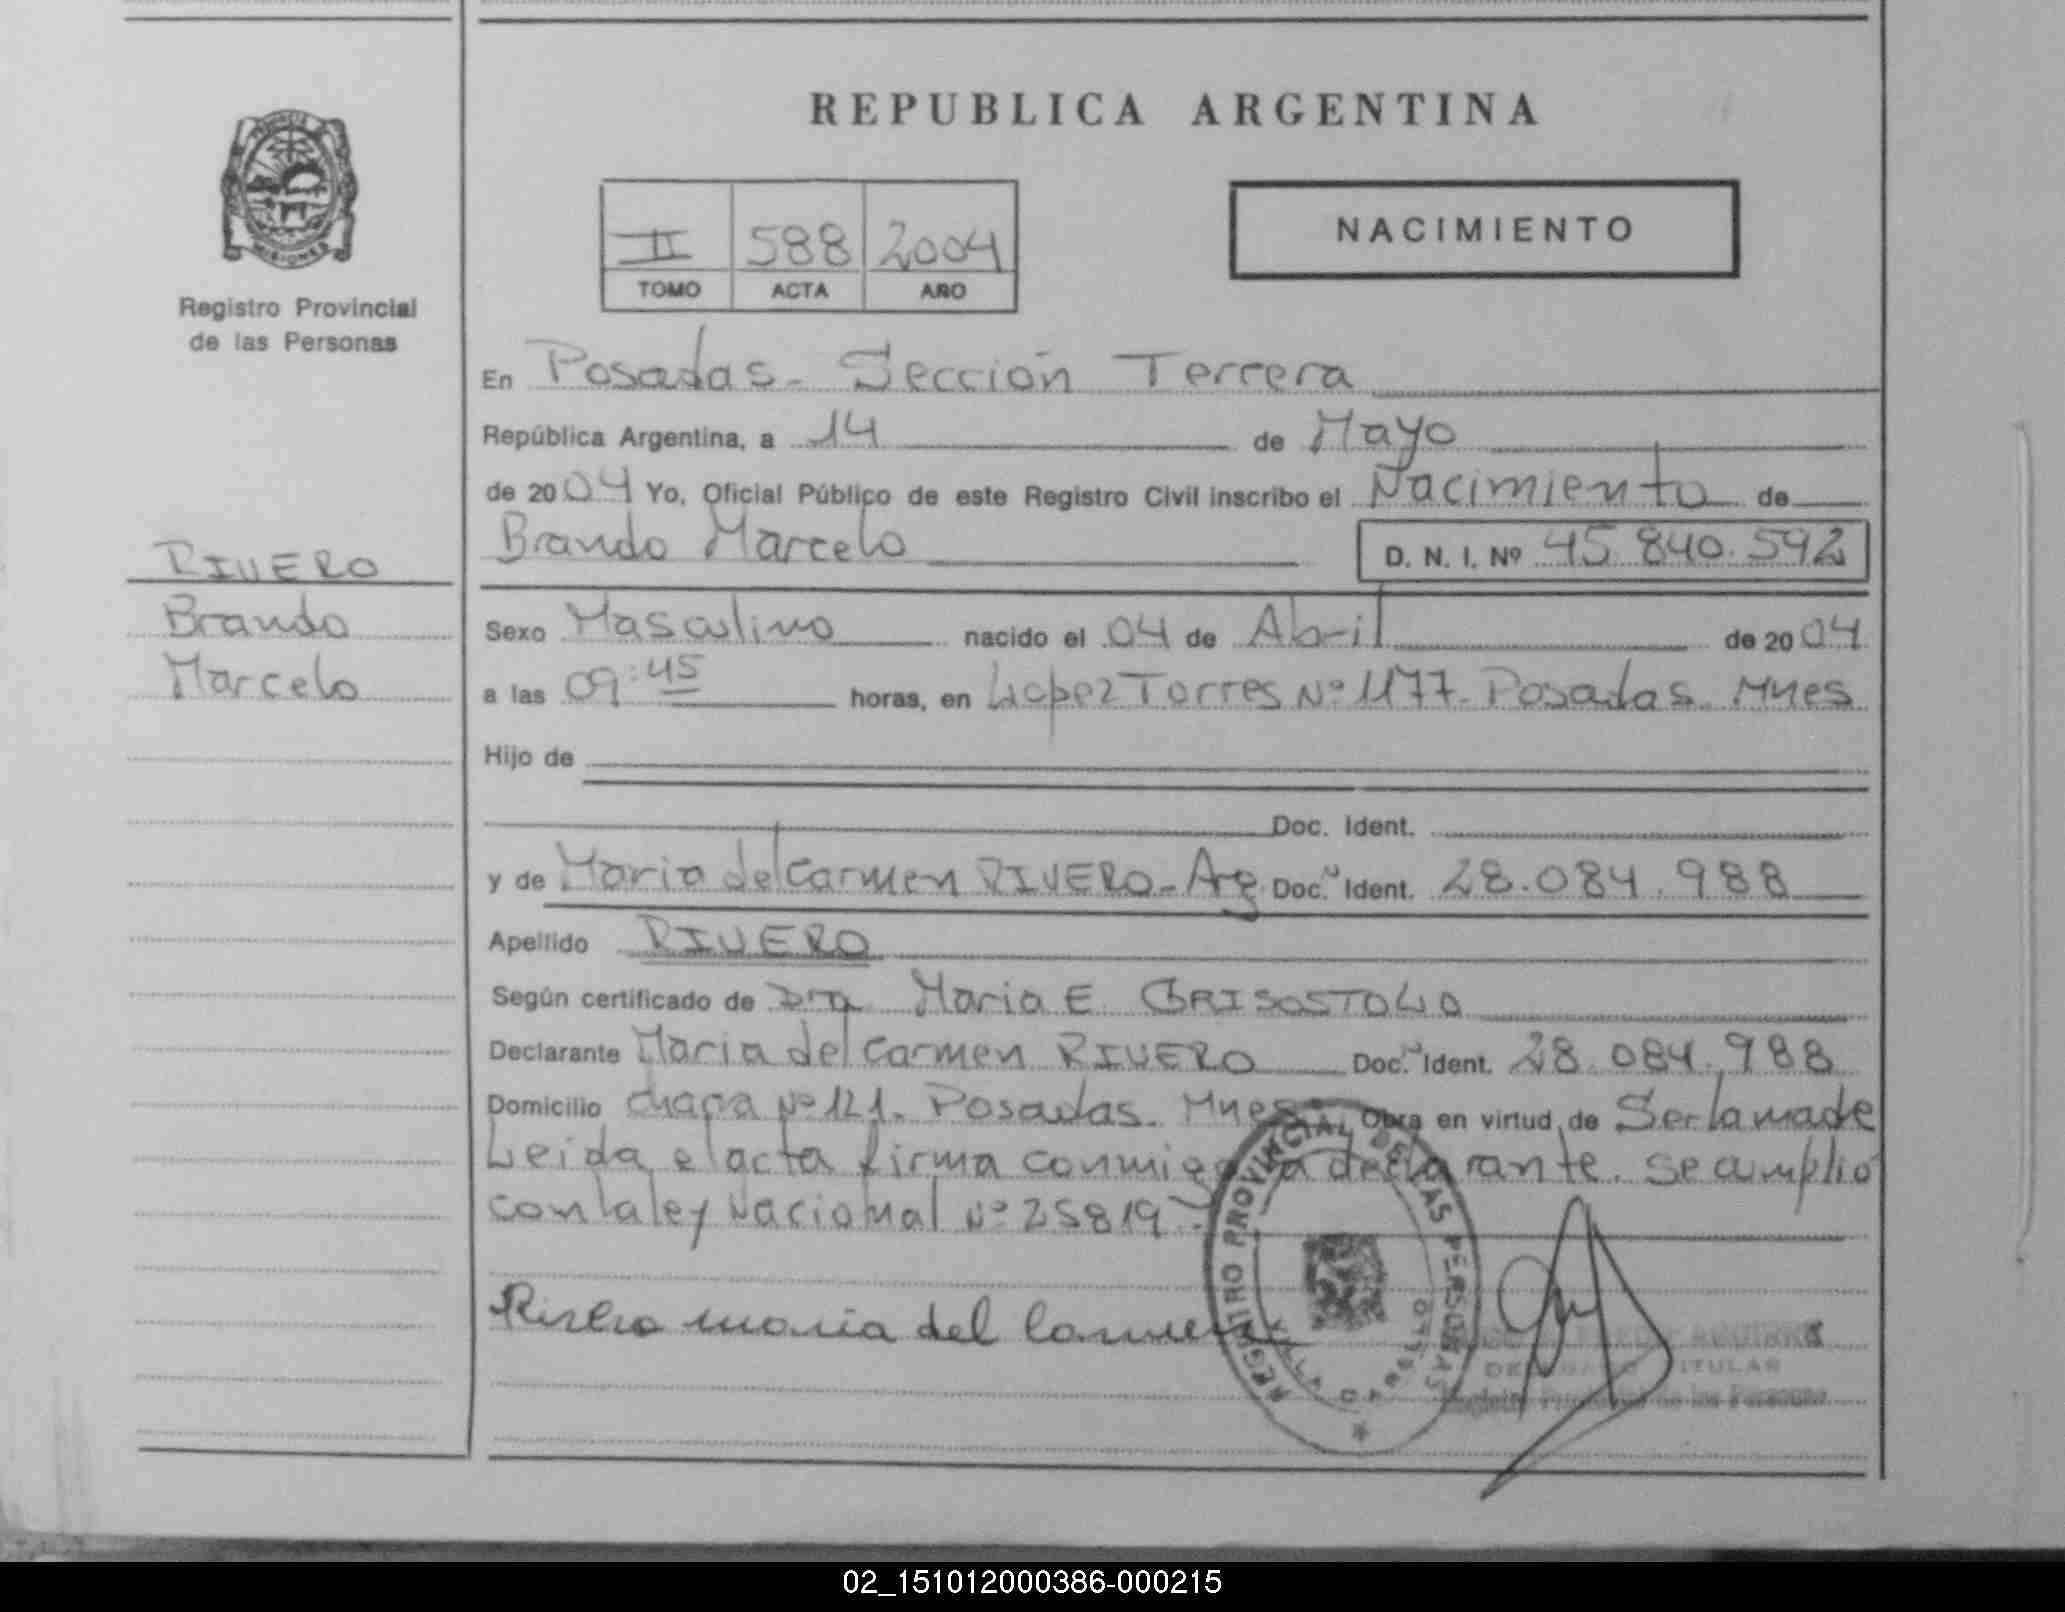 REPUBLICA ARGENTINA
PROVINCIA
MISIONES
Registro Provincial
de las Personas
II 588 2004
TOMO ACTA AÑO
NACIMIENTO
En Posadas - Sección Tercera
República Argentina, a 14 de Mayo
de 2004 Yo, Oficial Público de este Registro Civil inscribo el Nacimiento de
Brando Marcelo D. N. I. Nº 45.840.592
RIVERO
Brando
Marcelo
Sexo Masculino nacido el 04 de Abril de 2004
a las 09:45 horas, en López Torres Nº 1177 - Posadas - Mnes
Hijo de
Doc. Ident.
y de Maria del Carmen RIVERO - Arg. Doc. Ident. 28.084.988
Apellido RIVERO
Según certificado de Dra Maria E.
Declarante Maria del Carmen RIVERO Doc. Ident. 28.084.988
Domicilio chacra Nº 121 - Posadas - Mnes - Obra en virtud de Ser la madre
Leida el acta firma conmigo la declarante. se cumplió
con la ley Nacional Nº 25819
Rivero maria del Carmen
REGISTRO PROVINCIAL DE LAS PERSONAS
VILLA CABELLO
AGUIRRE
DELEGADO TITULAR
Registro Provincial de las Personas
02_151012000386-000215